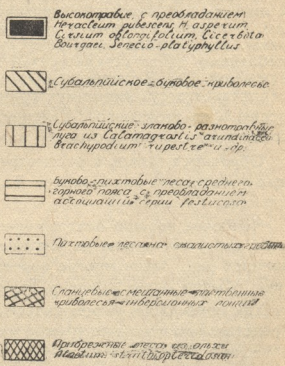 Высокотравие, с преобладанием
Heracleum pubescens, H. asperum
Cirsium oblongifolium, Cicerbita
Bourgaei, Senecio platyphyllus.
Субальпийское буковое криволесье
Субальпийские злаково-разнотравные
луга из Calamagrostis arundinacea
Brachypodium rupestre и др.
Буково-пихтовые леса среднего
горного пояса с преобладанием
ассоциаций серии festucosa
Пихтовые леса на скалистых
смешанные лиственные
криволесья инверсионных
Прибрежные леса из ольхи